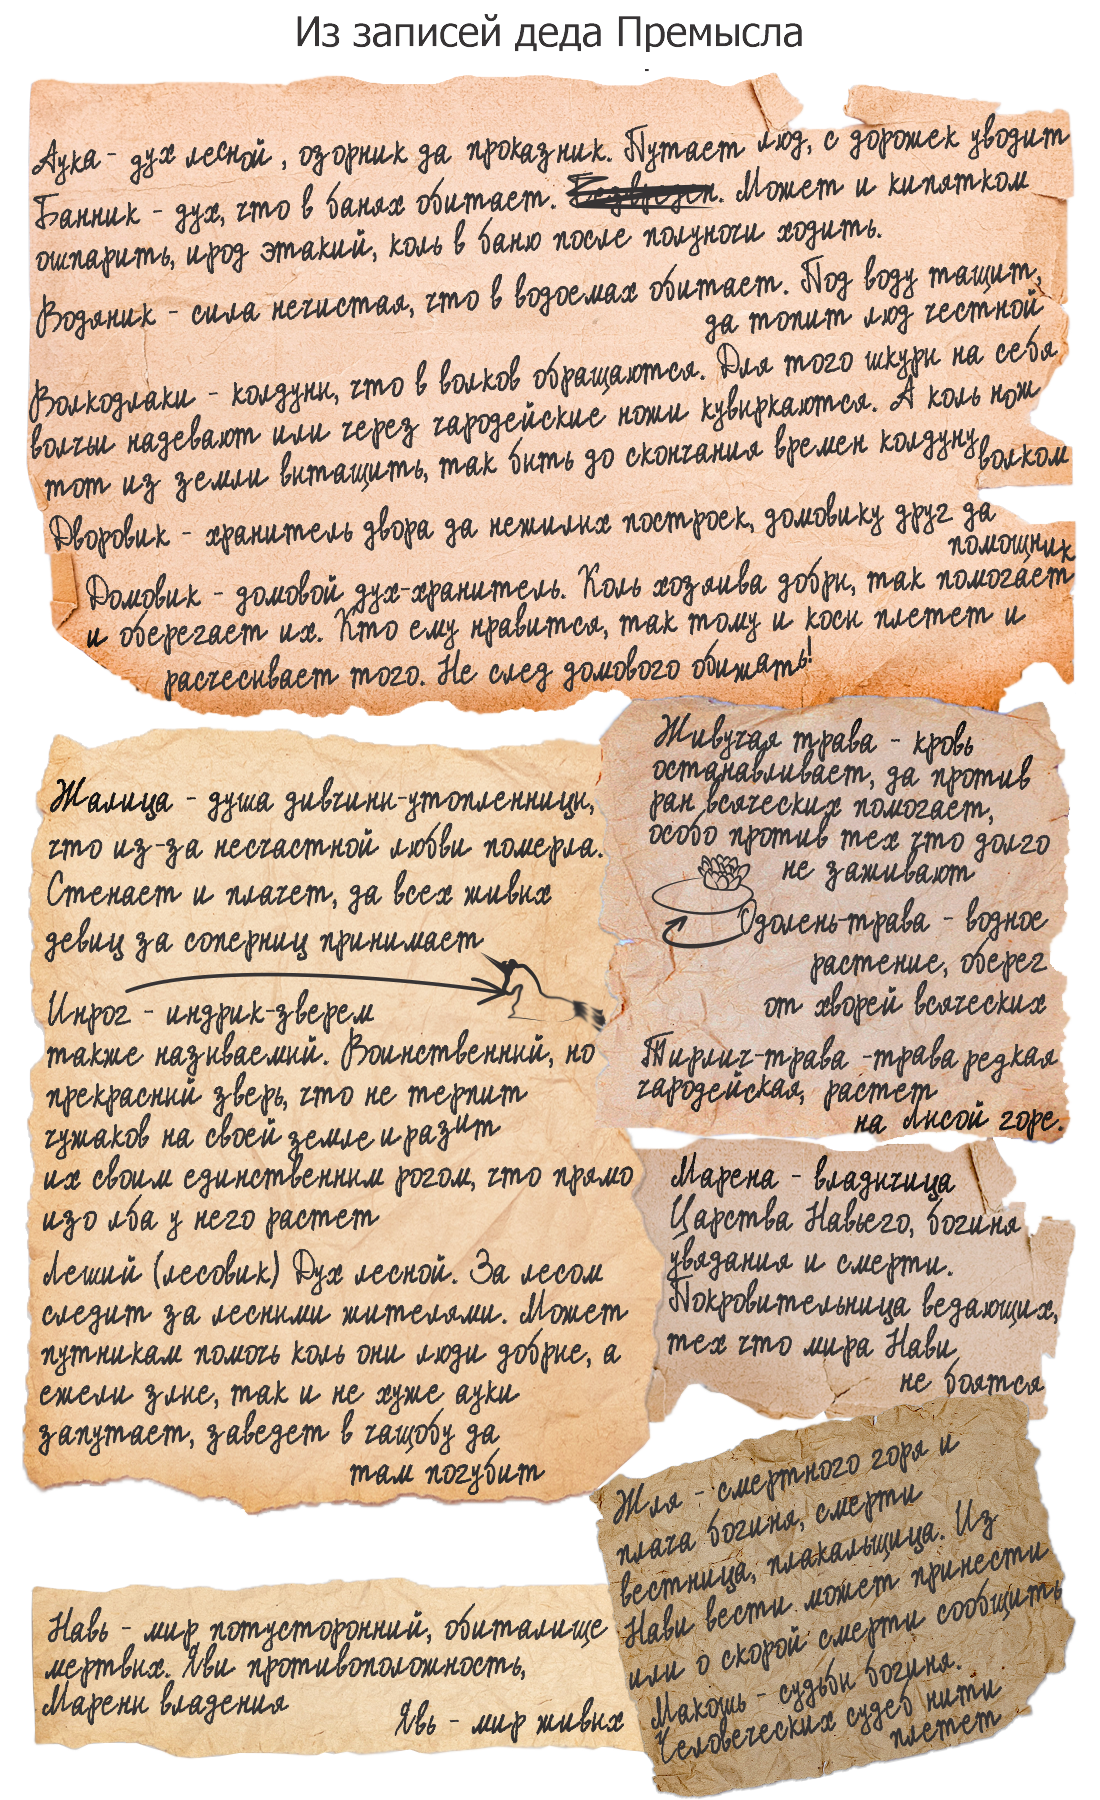 Из записей деда Премысла
Аука - дух лесной, озорник да проказник. Путает люд, с дорожек уводит
Банник - дух, что в банях обитает. Безвреден. Может и кипятком
ошпарить, ирод этакий, коль в баню после полуночи ходить.
Водяник - сила нечистая, что в водоемах обитает. Под воду тащит,
да топит люд честной
Волкодлаки - колдуны, что в волков обращаются. Для того шкуры на себя
волчьи надевают или через чародейские ножи кувыркаются. А коль нож
тот из земли вытащить, так быть до скончания времен колдуну
волком
Дворовик - хранитель двора да нежилых построек, домовику друг да
помощник
Домовик - домовой дух-хранитель. Коль хозяива добры, так помогает
и оберегает их. Кто ему нравится, так тому и косы плетет и
расчесывает того. Не след домового обижать!
Жалица - душа дивчины-утопленницы,
что из-за несчастной любви померла.
Стенает и плачет, да всех живых
девиц за соперниц принимает
Инрог - индрик-зверем
также называемый. Воинственный, но
прекрасный зверь, что не терпит
чужаков на своей земле и разит
их своим единственным рогом, что прямо
изо лба у него растет
Леший (лесовик) Дух лесной. За лесом
следит за лесными жителями. Может
путникам помочь коль они люди добрые, а
ежели злые, так и не хуже ауки
запутает, заведет в чащобу да
там погубит
Живучая трава - кровь
останавливает, да против
ран всяческих помогает,
особо против тех что долго
не заживают
Одолень-трава - водное
растение, оберег
от хворей всяческих
Тирлич-трава - трава редкая
чародейская, растет
на Лысой горе.
Марена - владычица
Царства Навьего, богиня
увядания и смерти.
Покровительница ведающих,
тех что мира Нави
не боятся
Жля - смертного горя и
плача богиня, смерти
вестница, плакальщица. Из
Нави вести может принести
или о скорой смерти сообщить
Макошь - судьбы богиня.
Человеческих судеб нити
плетет
Навь - мир потусторонний, обиталище
мертвых. Яви противоположность,
Марены владения
Явь - мир живых